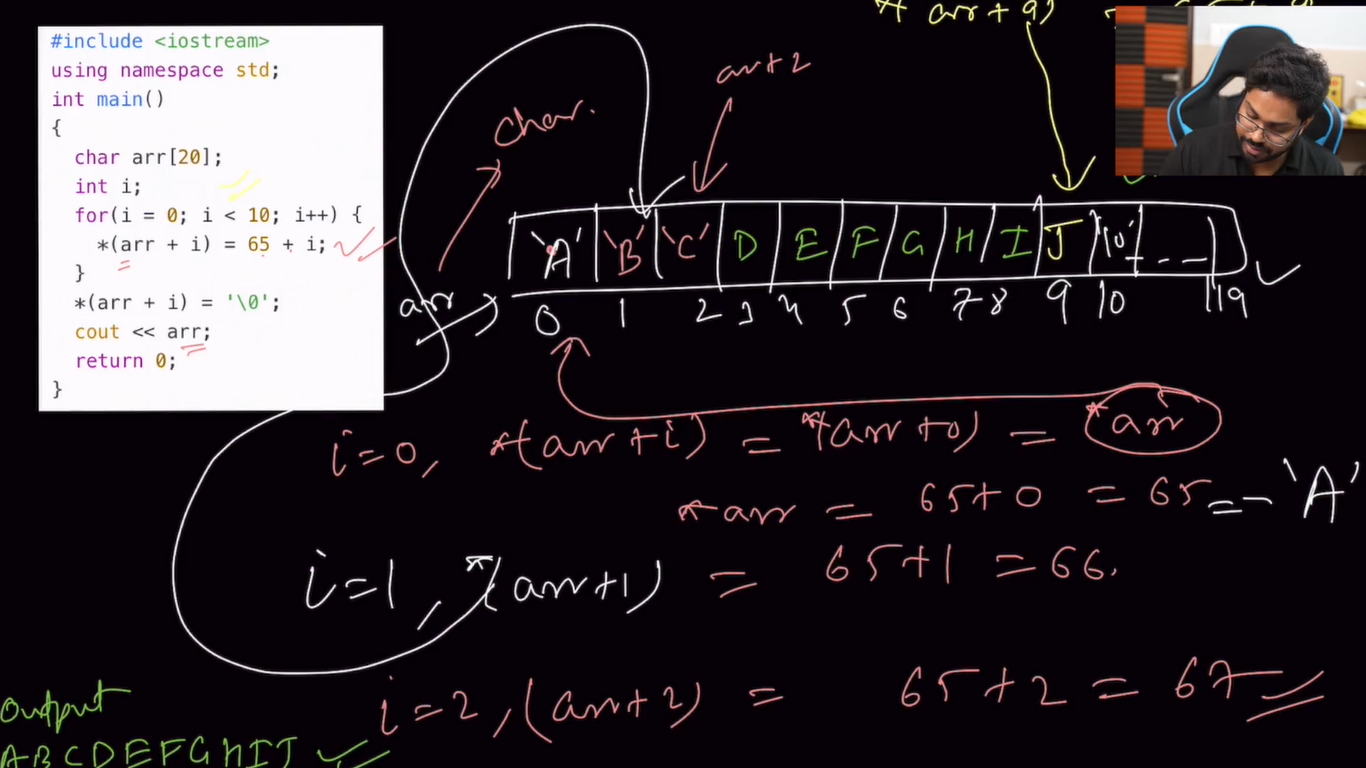 #include <iostream>
using namespace std;
int main()
{
char arr[20];
int i;
for(i = 0; i < 10; i++) {
*(arr + i) = 65 + i;
}
*(arr + i) = '\0';
cout << arr;
return 0;
}
* arr + 9)
char.
arr+2
arr
'A' 'B' 'C' D E F G H I J '\0' - - -
0 1 2 3 4 5 6 7 8 9 10 19
i=0, *(arr+i) = *(arr+0) = *arr
*arr = 65+0 = 65 == 'A'
i=1, *(arr+1) = 65+1 = 66.
i=2, (arr+2) = 65+2 = 67
Output
ABCDEFGHIJ